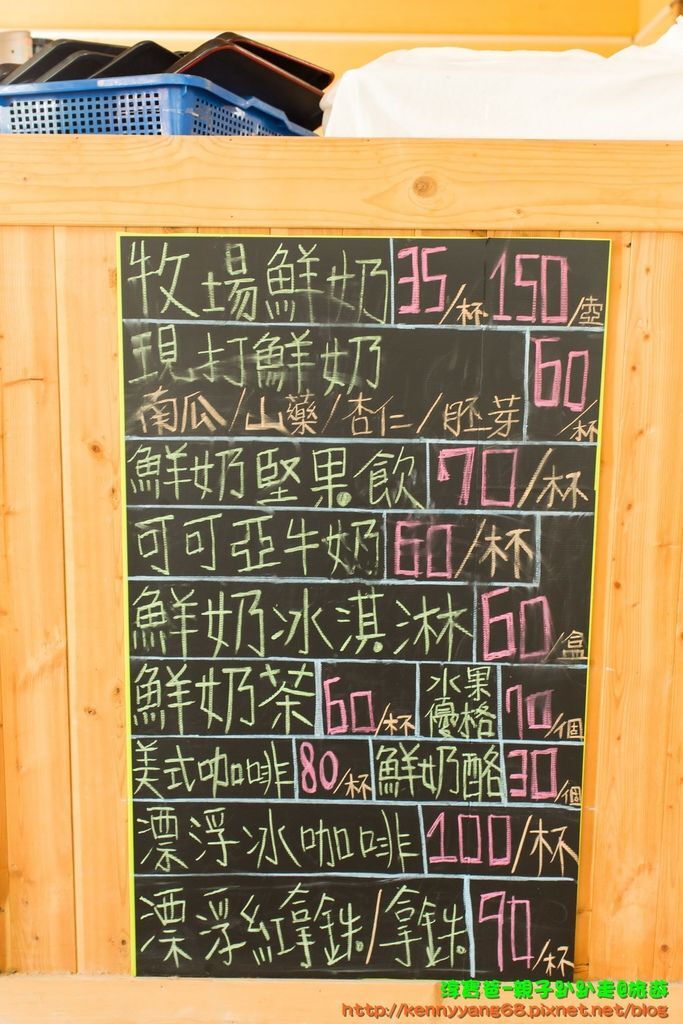 牧場鮮奶 35/杯 150/壺
現打鮮奶 60/杯
南瓜/山藥/杏仁/胚芽
鮮奶堅果飲 70/杯
可可亞牛奶 60/杯
鮮奶冰淇淋 60/盒
鮮奶茶 60/杯 水果優格 70/個
美式咖啡 80/杯 鮮奶酪 30/個
漂浮冰咖啡 100/杯
漂浮紅拿鉄/拿鉄 90/杯
爸-親子趴趴走@旅遊
http://kennyyang68.pixnet.net/blog